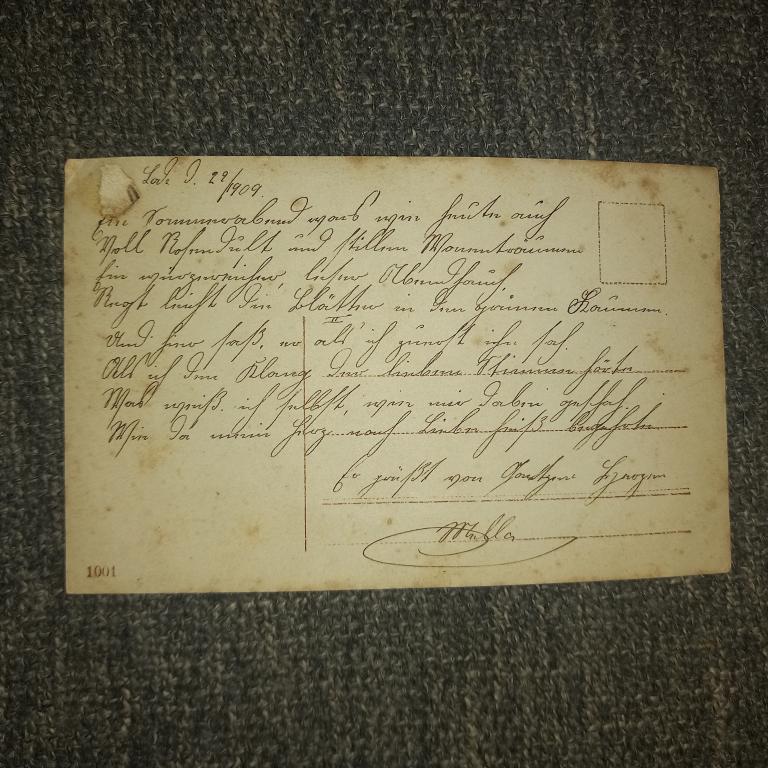 d. 29/1909.
Ein Sommerabend war's wie heute auch
Voll Rosenduft und stillen Wonneträumen
Ein würzereicher, leiser Abendhauch
Regt leicht die Blätter in den grünen Bäumen.
II
Und hier saß er als ich zuerst ihn sah,
Als ich den Klang der lieben Stimme hörte
Was weiß ich selbst, wie mir dabei geschah,
Wie da mein Herz nach Liebe heiß begehrte
Es grüßt von Herzen
Mella
1001